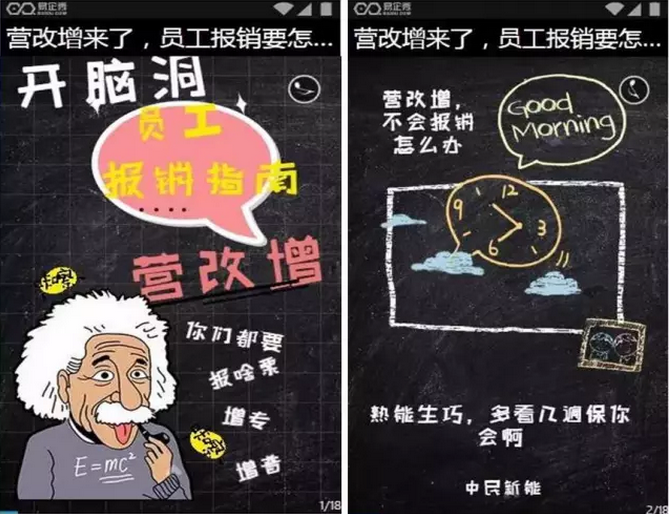 易企秀
营改增来了，员工报销要怎...
开脑洞
员工
报销指南
....
营改增
你们都要
报啥票
增专
增普
E=mc²
1/18
易企秀
营改增来了，员工报销要怎...
营改增，
不会报销
怎么办
Good
Morning
12
9
3
6
熟能生巧，多看几遍保你
会啊
中民新能
2/18